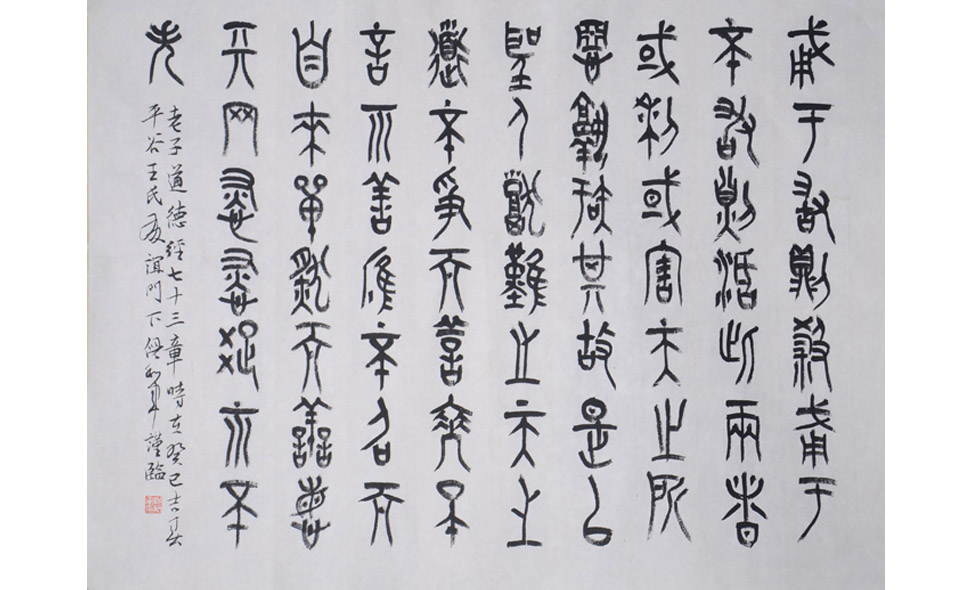 勇于敢則殺勇于
不敢則活此兩者
或利或害天之所
惡孰知其故是以
聖人猶難之天之
道不爭而善勝不
言而善應不召而
自來單然而善謀
天网恢恢疏而不
失
老子道德經七十三章時在癸巳吉春
平谷王氏友誼門下倪謹臨